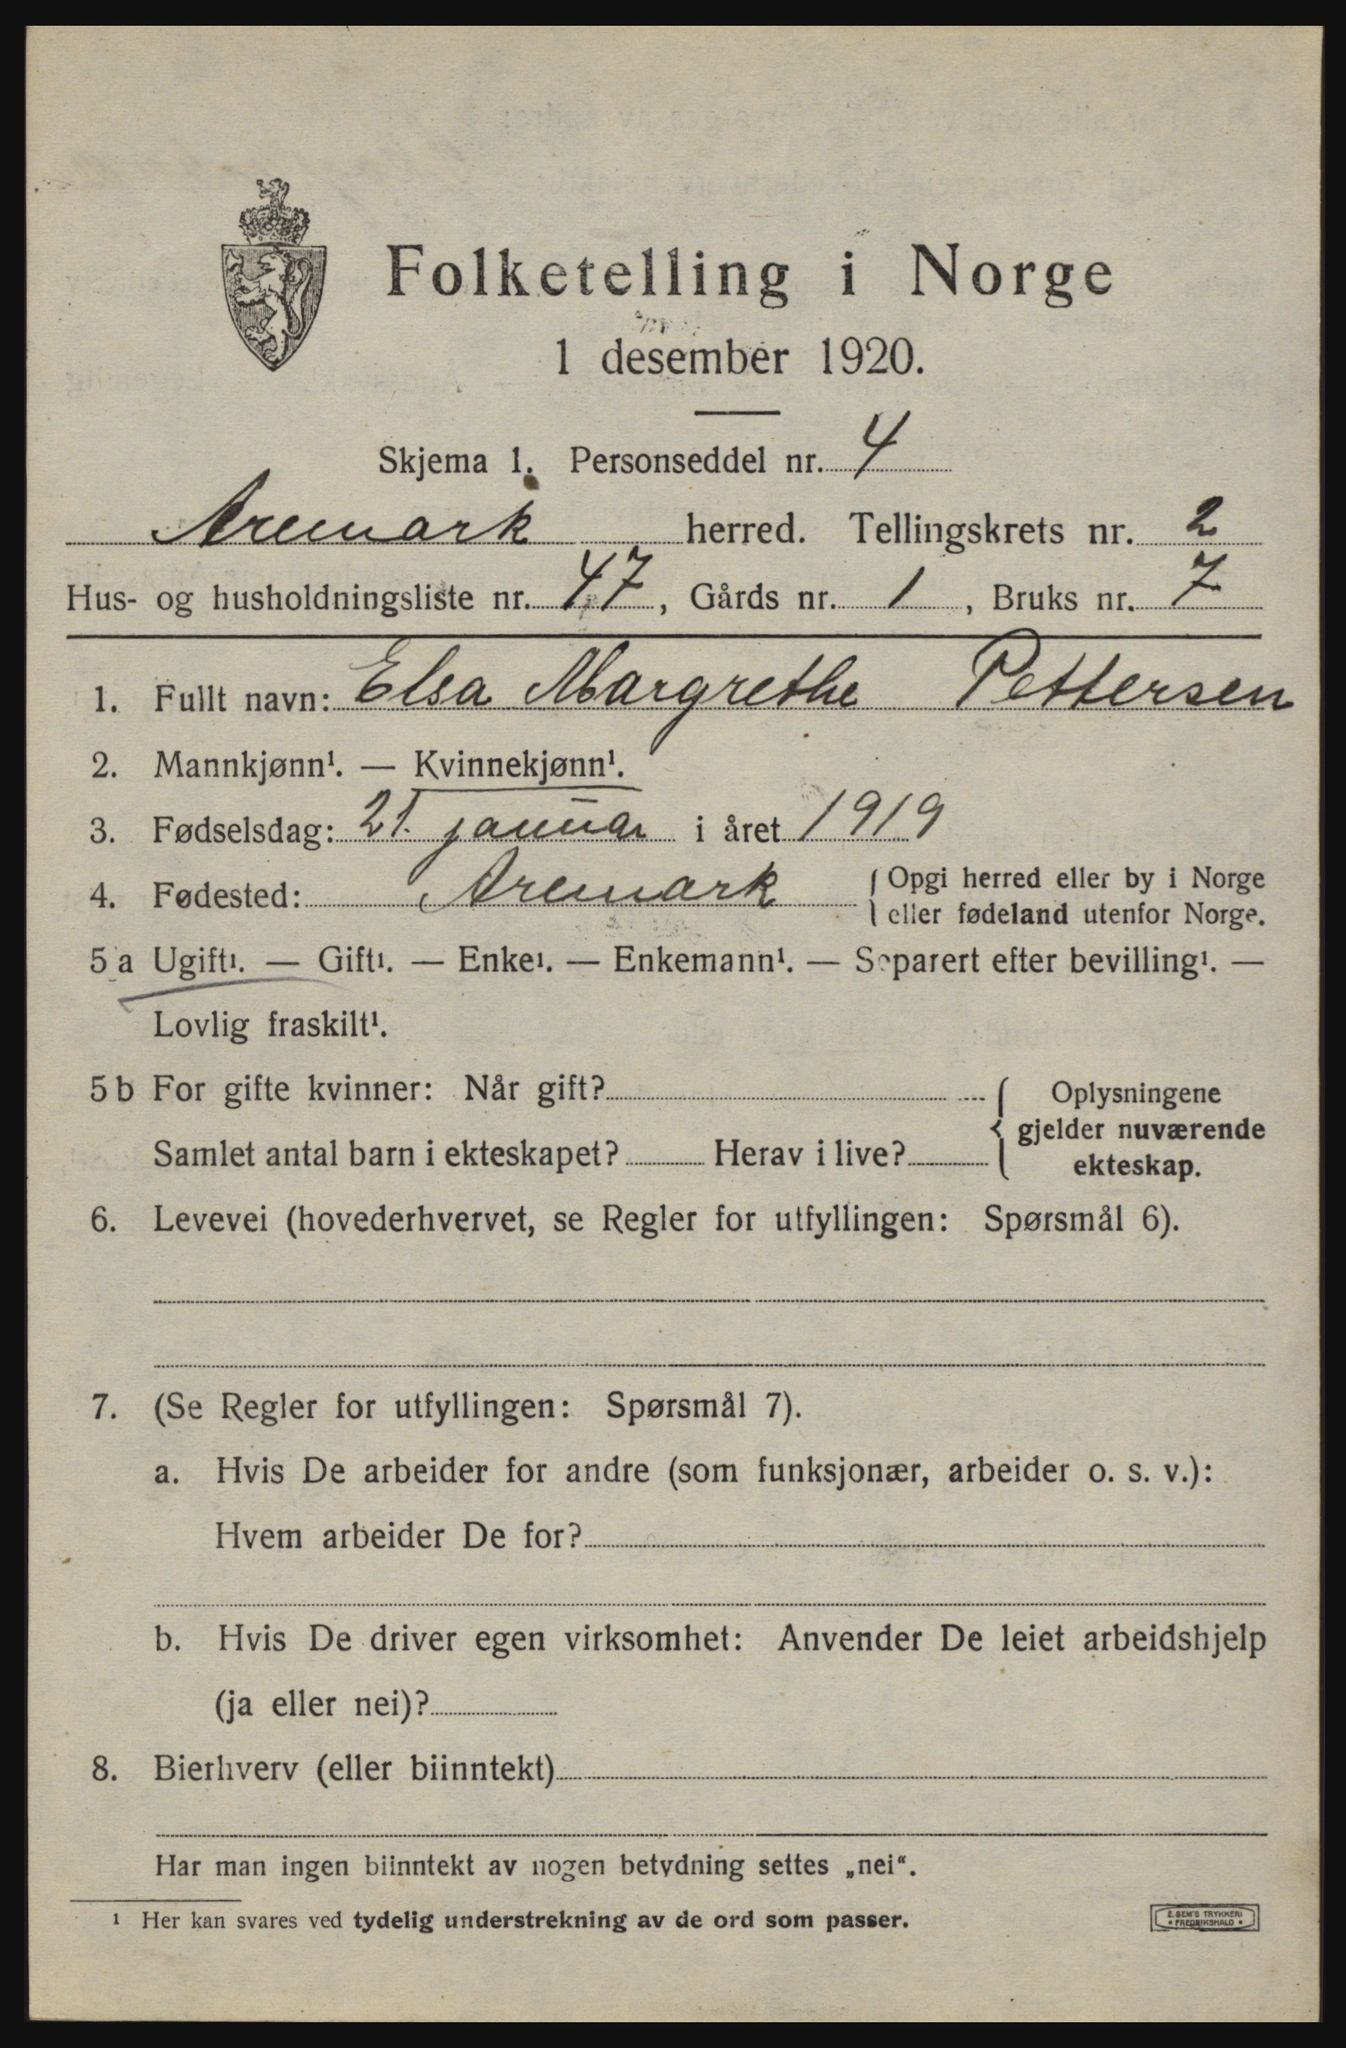 Folketelling i Norge
1 desember 1920.
Skjema 1. Personseddel nr. 4
Aremark herred. Tellingskrets nr. 2
Hus- og husholdningsliste nr. 47, Gårds nr. 1, Bruks nr. 7
1. Fullt navn: Elsa Margrethe Pettersen
2. Mannkjønn¹. — Kvinnekjønn¹.
3. Fødselsdag: 21. januar i året 1919
4. Fødested: Aremark { Opgi herred eller by i Norge
eller fødeland utenfor Norge.
5 a Ugift¹. — Gift¹. — Enke¹. — Enkemann¹. — Separert efter bevilling¹. —
Lovlig fraskilt¹.
5 b For gifte kvinner: Når gift? { Oplysningene
gjelder nuværende
Samlet antal barn i ekteskapet? Herav i live?
ekteskap.
6. Levevei (hovederhvervet, se Regler for utfyllingen: Spørsmål 6).
7. (Se Regler for utfyllingen: Spørsmål 7).
a. Hvis De arbeider for andre (som funksjonær, arbeider o. s. v.):
Hvem arbeider De for?
b. Hvis De driver egen virksomhet: Anvender De leiet arbeidshjelp
(ja eller nei)?
8. Bierhverv (eller biinntekt)
Har man ingen biinntekt av nogen betydning settes „nei“.
¹ Her kan svares ved tydelig understrekning av de ord som passer.
E. SEM'S TRYKKERI
* FREDRIKSHALD *